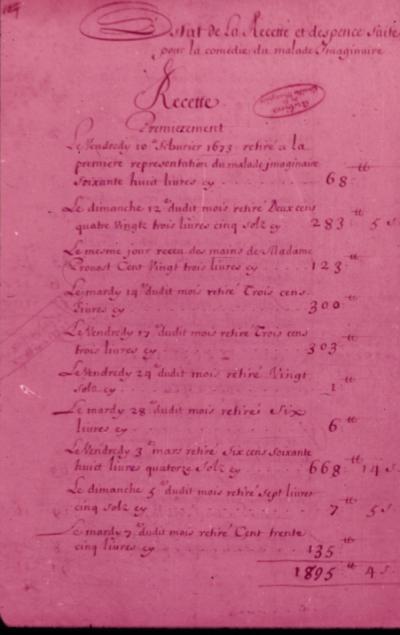 Estat de la Recette et despence faite
pour la comedie du malade Imaginaire
Recette
Premierement
Le Vendredy 10e feburier 1673 retiré a la
premiere representation du malade jmaginaire
Soixante huict livres cy 68 tt
Le dimanche 12e dudit mois retiré Deux cens
quatre Vingtz trois livres cinq solz cy 283 tt 5 s
Le mesme jour receu des mains de Madame
Provost Cent Vingt trois livres cy 123 tt
Le mardy 14e dudit mois retiré Trois cens
livres cy 300 tt
Le Vendredy 17e dudit mois retiré Trois cens
trois livres cy 303 tt
Le Vendredy 24e dudit mois retiré Vingt
solz cy 1 tt
Le mardy 28e dudit mois retiré Six
livres cy 6 tt
Le Vendredy 3e mars retiré Six cens soixante
huict livres quatorze solz cy 668 tt 14 s
Le dimanche 5e dudit mois retiré sept livres
cinq solz cy 7 tt 5 s
Le mardy 7e dudit mois retiré Cent trente
cinq livres cy 135 tt
1895 tt 4 s